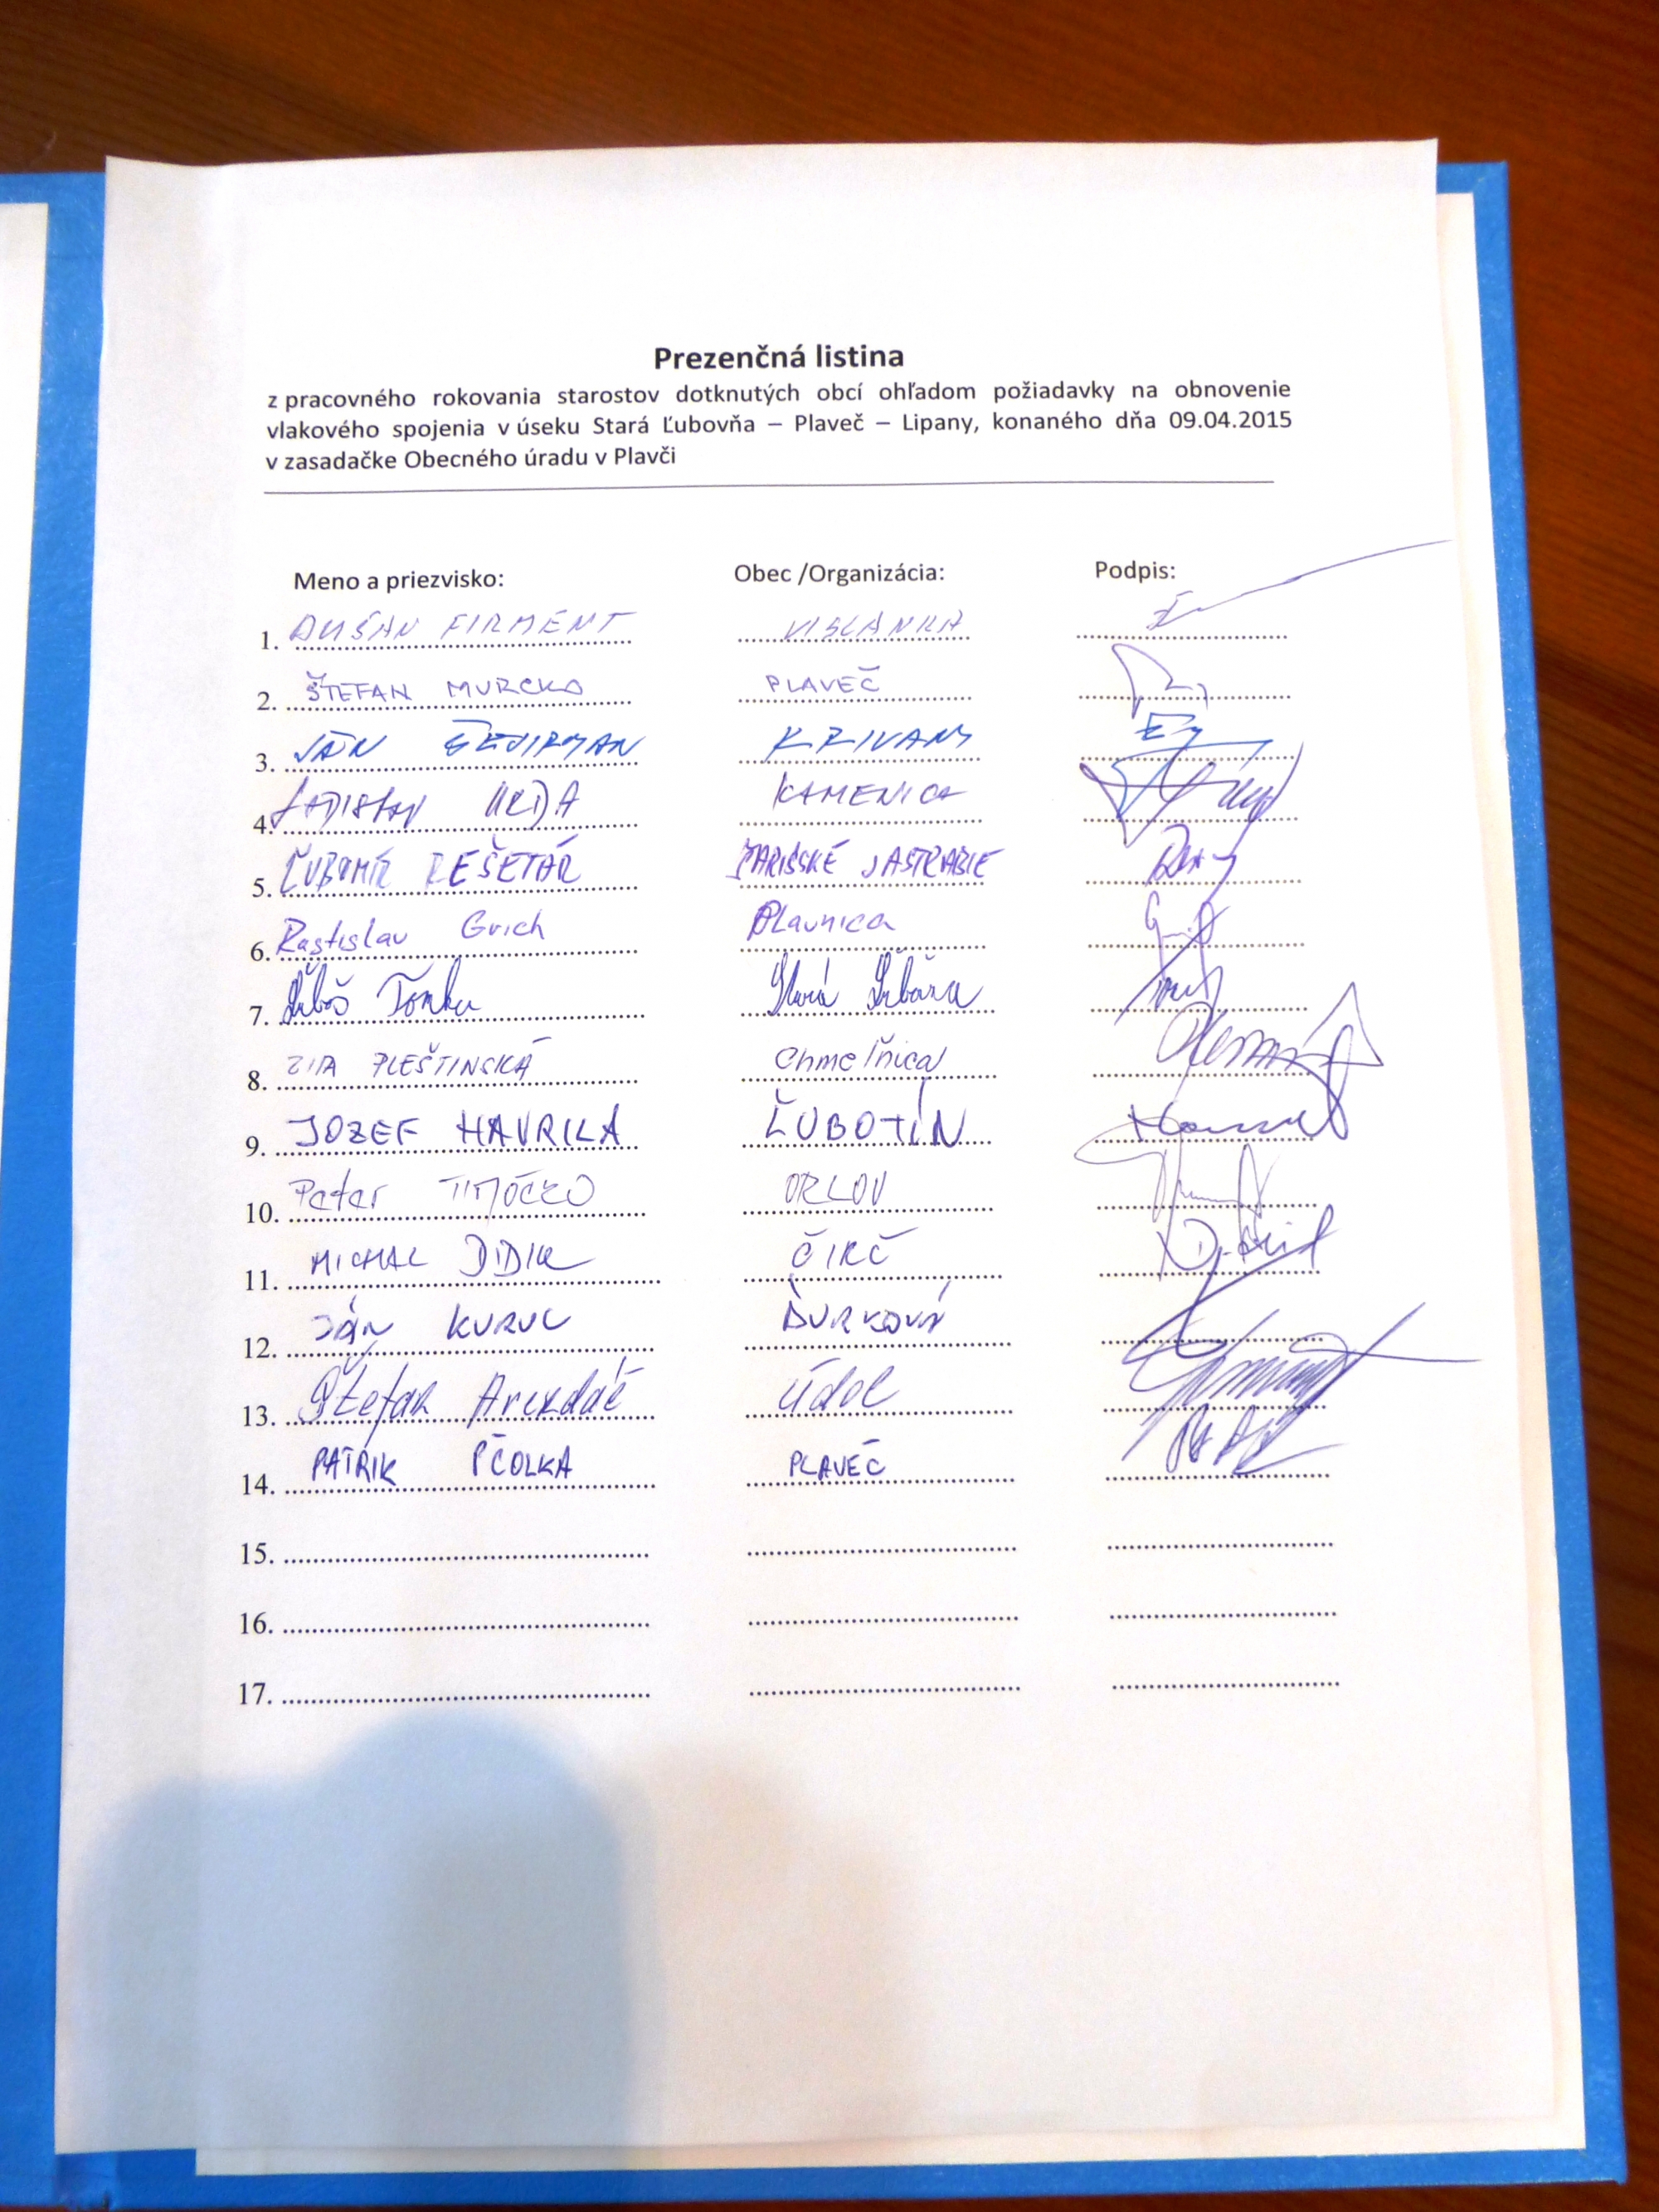 Prezenčná listina
z pracovného rokovania starostov dotknutých obcí ohľadom požiadavky na obnovenie
vlakového spojenia v úseku Stará Ľubovňa – Plaveč – Lipany, konaného dňa 09.04.2015
v zasadačke Obecného úradu v Plavči
Meno a priezvisko: Obec /Organizácia: Podpis:
1. DUŠAN FIRMENT VISLANKA
2. ŠTEFAN MURCKO PLAVEČ
3. JÁN KRIVANY
4. LADISLAV KAMENICA
5. ĽUBOMÍR REŠETÁR ŠARIŠSKÉ JASTRABIE
6. Rastislav Grich Plavnica
7. Ľuboš Tomko Stará Ľubovňa
8. ZITA PLEŠTINSKÁ Chmeľnica
9. JOZEF HAVRILA ĽUBOTÍN
10. Peter TIMOČKO ORLOV
11. MICHAL DIDIK ČIRČ
12. JÁN KURUC ĎURKOVÁ
13. Štefan Údol
14. PATRIK PČOLKA PLAVEČ
15.
16.
17.